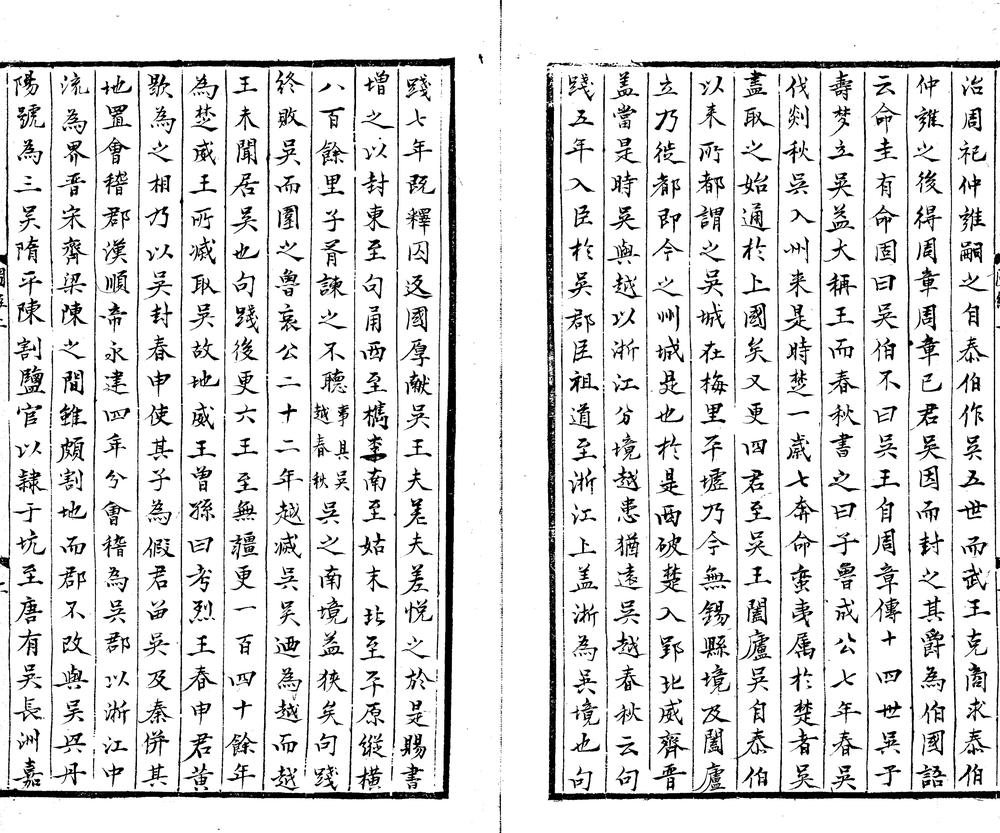 治周祀仲雍嗣之自泰伯作吳五世而武王克商求泰伯
仲雍之後得周章周章已君吳因而封之其爵為伯國語
云命圭有命固曰吳伯不曰吳王自周章傳十四世吳子
壽梦立吳益大稱王而春秋書之曰子魯成公七年春吳
伐剡秋吳入州来是時楚一歲七奔命蛮夷属於楚者吳
盡取之始通於上國矣又更四君至吳王闔廬吳自泰伯
以来所都謂之吳城在梅里平墟乃今無錫縣境及闔廬
立乃徙都即今之州城是也於是西破楚入郢北威齊晋
盖當是時吳與越以浙江分境越患猶遠吳越春秋云句
踐五年入臣於吳郡臣祖道至浙江上盖浙為吳境也句
踐七年既釋囚返國厚献吳王夫差夫差悦之於是賜書
增之以封東至句甬西至檇李南至姑末北至平原縱橫
八百餘里子胥諫之不聽事具吳越春秋吳之南境益狹矣句踐
終敗吳而圍之魯哀公二十二年越滅吳吳迺為越而越
王未聞居吳也句踐後更六王至無疆更一百四十餘年
為楚威王所滅取吳故地威王曽孫曰考烈王春申君黄
歇為之相乃以吳封春申使其子為假君留吳及秦併其
地置會稽郡漢順帝永建四年分會稽為吳郡以浙江中
流為界晋宋齊梁陳之間雖頗割地而郡不改與吳興丹
陽號為三吳隋平陳割鹽官以隷于坑至唐有吳長洲嘉